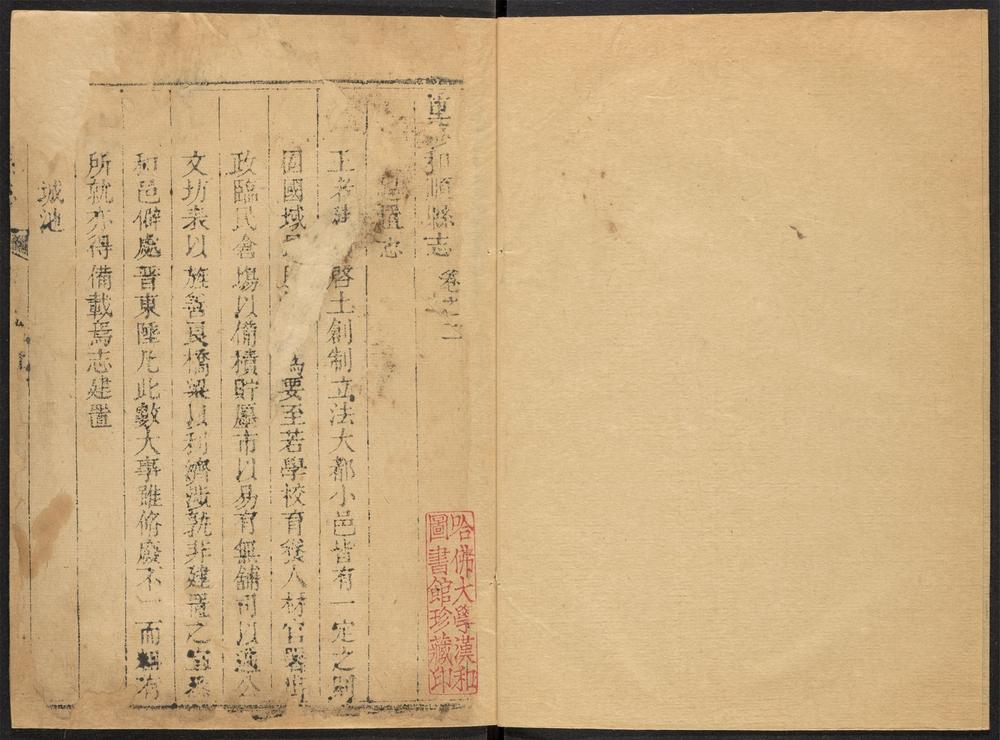 重修和順縣志 卷之二
建置志
王者建　　啓土創制立法大都小邑皆有一定之制
固國域民　　　為要至若學校育賢人材官署出
政臨民倉場以備積貯廛市以易有無舖司以遞公
文坊表以旌善良橋梁以利濟涉孰非建置之宜然
和邑僻處晉東陲凡此數大事雖脩廢不一而粗有
所就亦得備載焉志建置
城池
哈佛大學漢和
圖書館珍藏印